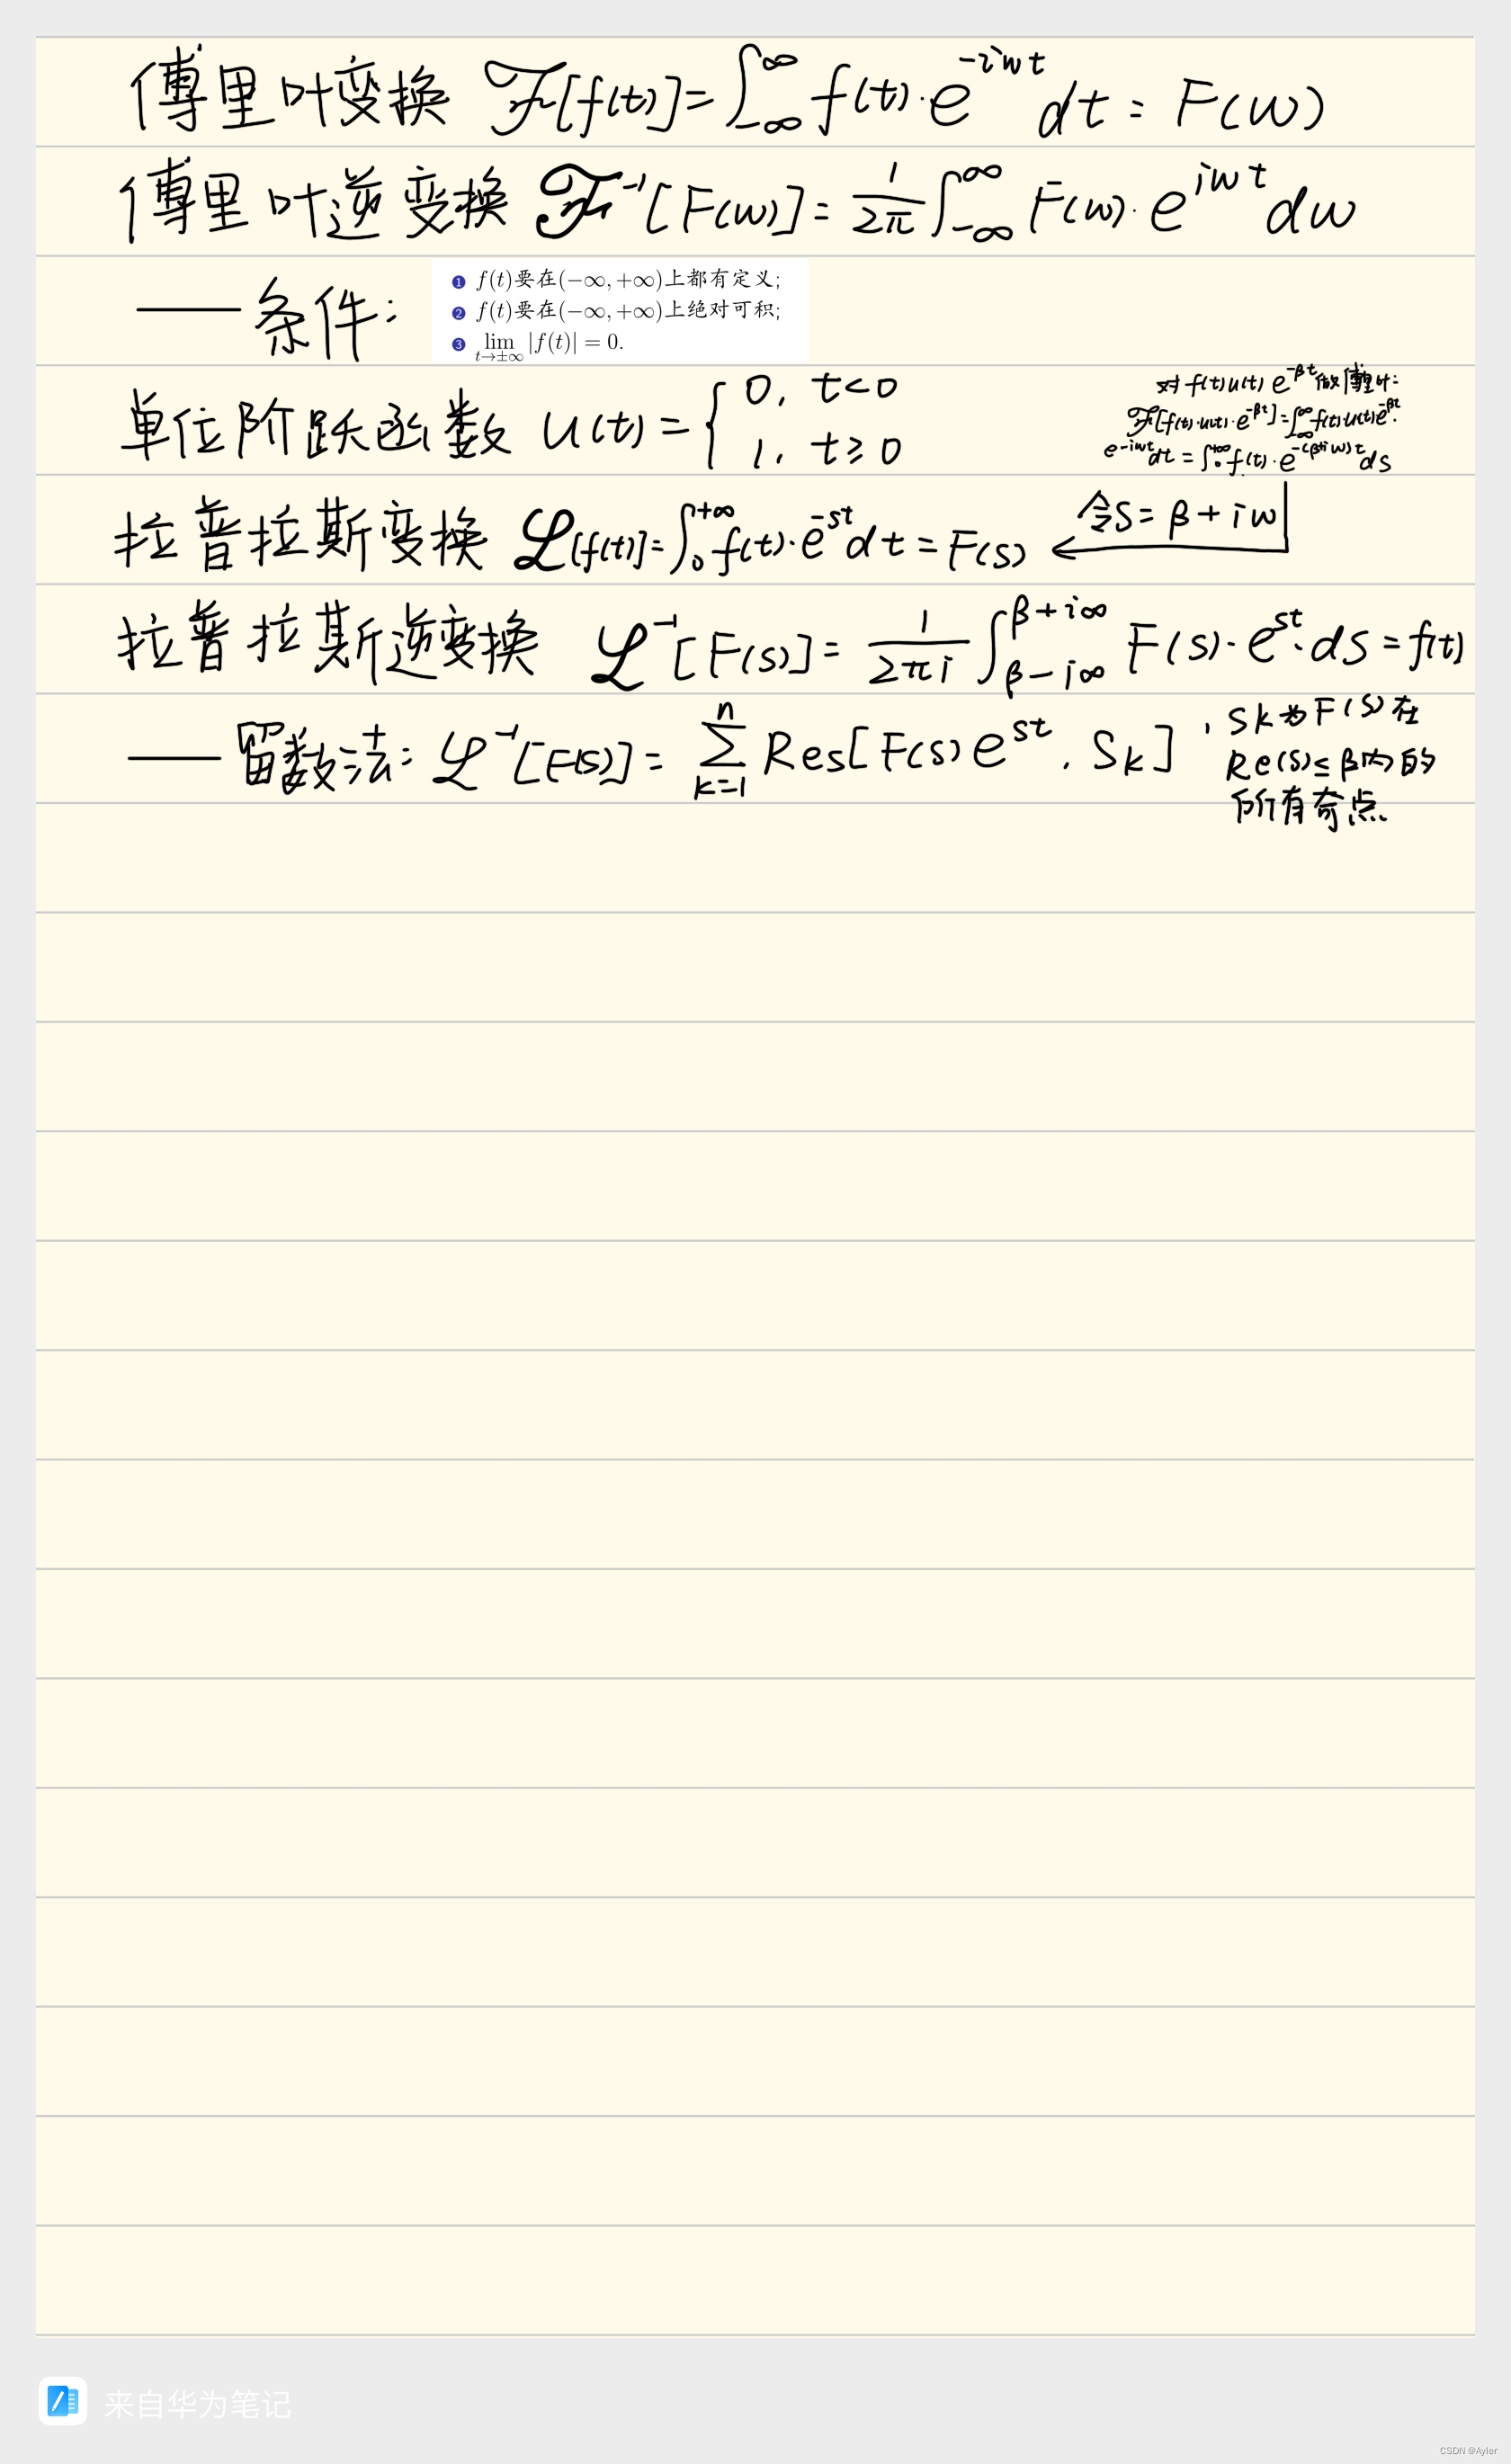 傅里叶变换 ℱ[f(t)]=∫_{-∞}^{∞} f(t)·e^{-iwt} dt = F(w)
傅里叶逆变换 ℱ^{-1}[F(w)]= 1/2π ∫_{-∞}^{∞} F(w)·e^{iwt} dw
——条件:
① f(t)要在(−∞,+∞)上都有定义;
② f(t)要在(−∞,+∞)上绝对可积;
③ lim_{t→±∞} |f(t)| = 0.
单位阶跃函数 u(t) = { 0, t<0
1, t≥0
对 f(t)u(t) e^{-βt} 做傅里叶:
ℱ[f(t)·u(t)·e^{-βt}]=∫_{-∞}^{∞} f(t)·u(t)e^{-βt}·
e^{-iwt}dt = ∫_{0}^{+∞} f(t)·e^{-(β+iw)t} ds
拉普拉斯变换 ℒ[f(t)]=∫_{0}^{+∞} f(t)·e^{-st} dt = F(s)
令S=β+iw
拉普拉斯逆变换 ℒ^{-1}[F(s)]= 1/2πi ∫_{β-i∞}^{β+i∞} F(s)·e^{st}·ds = f(t)
——留数法: ℒ^{-1}[F(s)]= ∑_{k=1}^{n} Res[F(s)e^{st}, S_k]
, Sk为F(s)在
Re(s)≤β内的
所有奇点
来自华为笔记
CSDN @Ayler